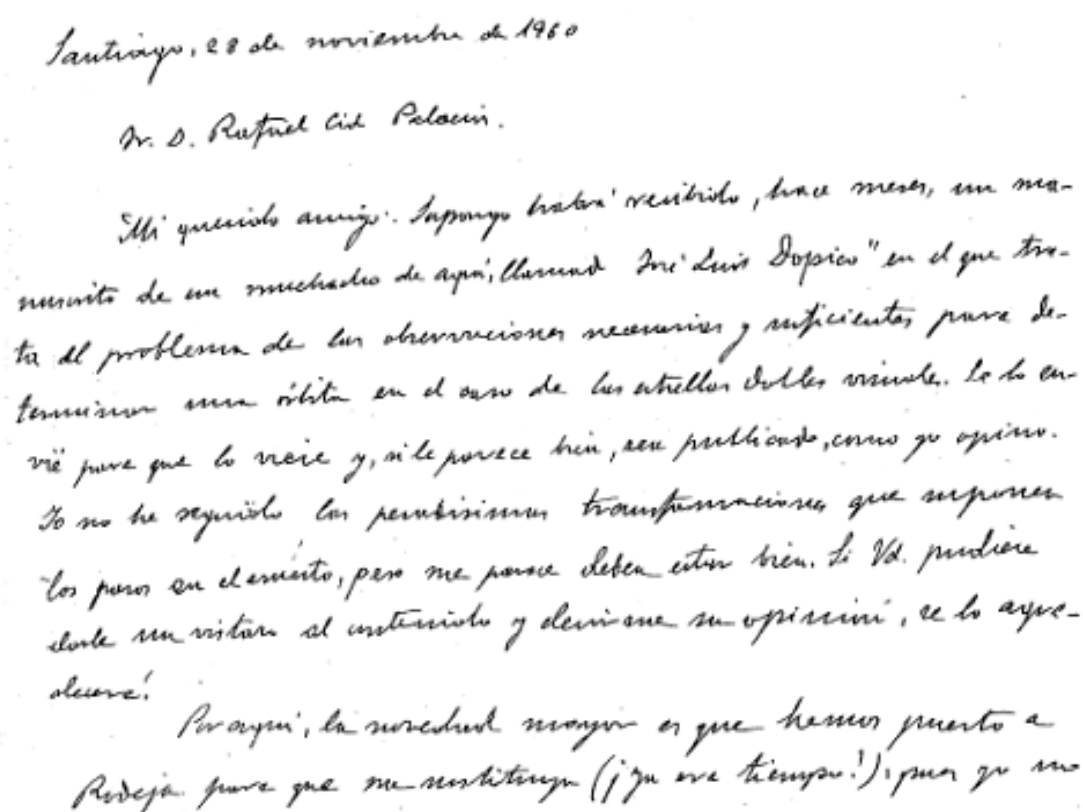 Santiago, 28 de noviembre de 1960
Sr. D. Rafael Cid Palacios.
Mi querido amigo: Supongo habrá recibido, hace meses, un ma-
nuscrito de un muchacho de aquí, llamado José Luis Dopico" en el que tra-
ta el problema de las observaciones necesarias y suficientes para de-
terminar una órbita en el caso de las estrellas dobles visuales. Se lo en-
vié para que lo viese y, si le parece bien, sea publicado, como yo opino.
Yo no he seguido las pesadísimas transformaciones que suponen
los pasos en el escrito, pero me parece deben estar bien. Si Vd. pudiera
darle un vistazo al contenido y decirme su opinión, se lo agra-
decerá.
Por aquí, la novedad mayor es que hemos puesto a
para que me sustituya (¡ya era tiempo!), pues yo no